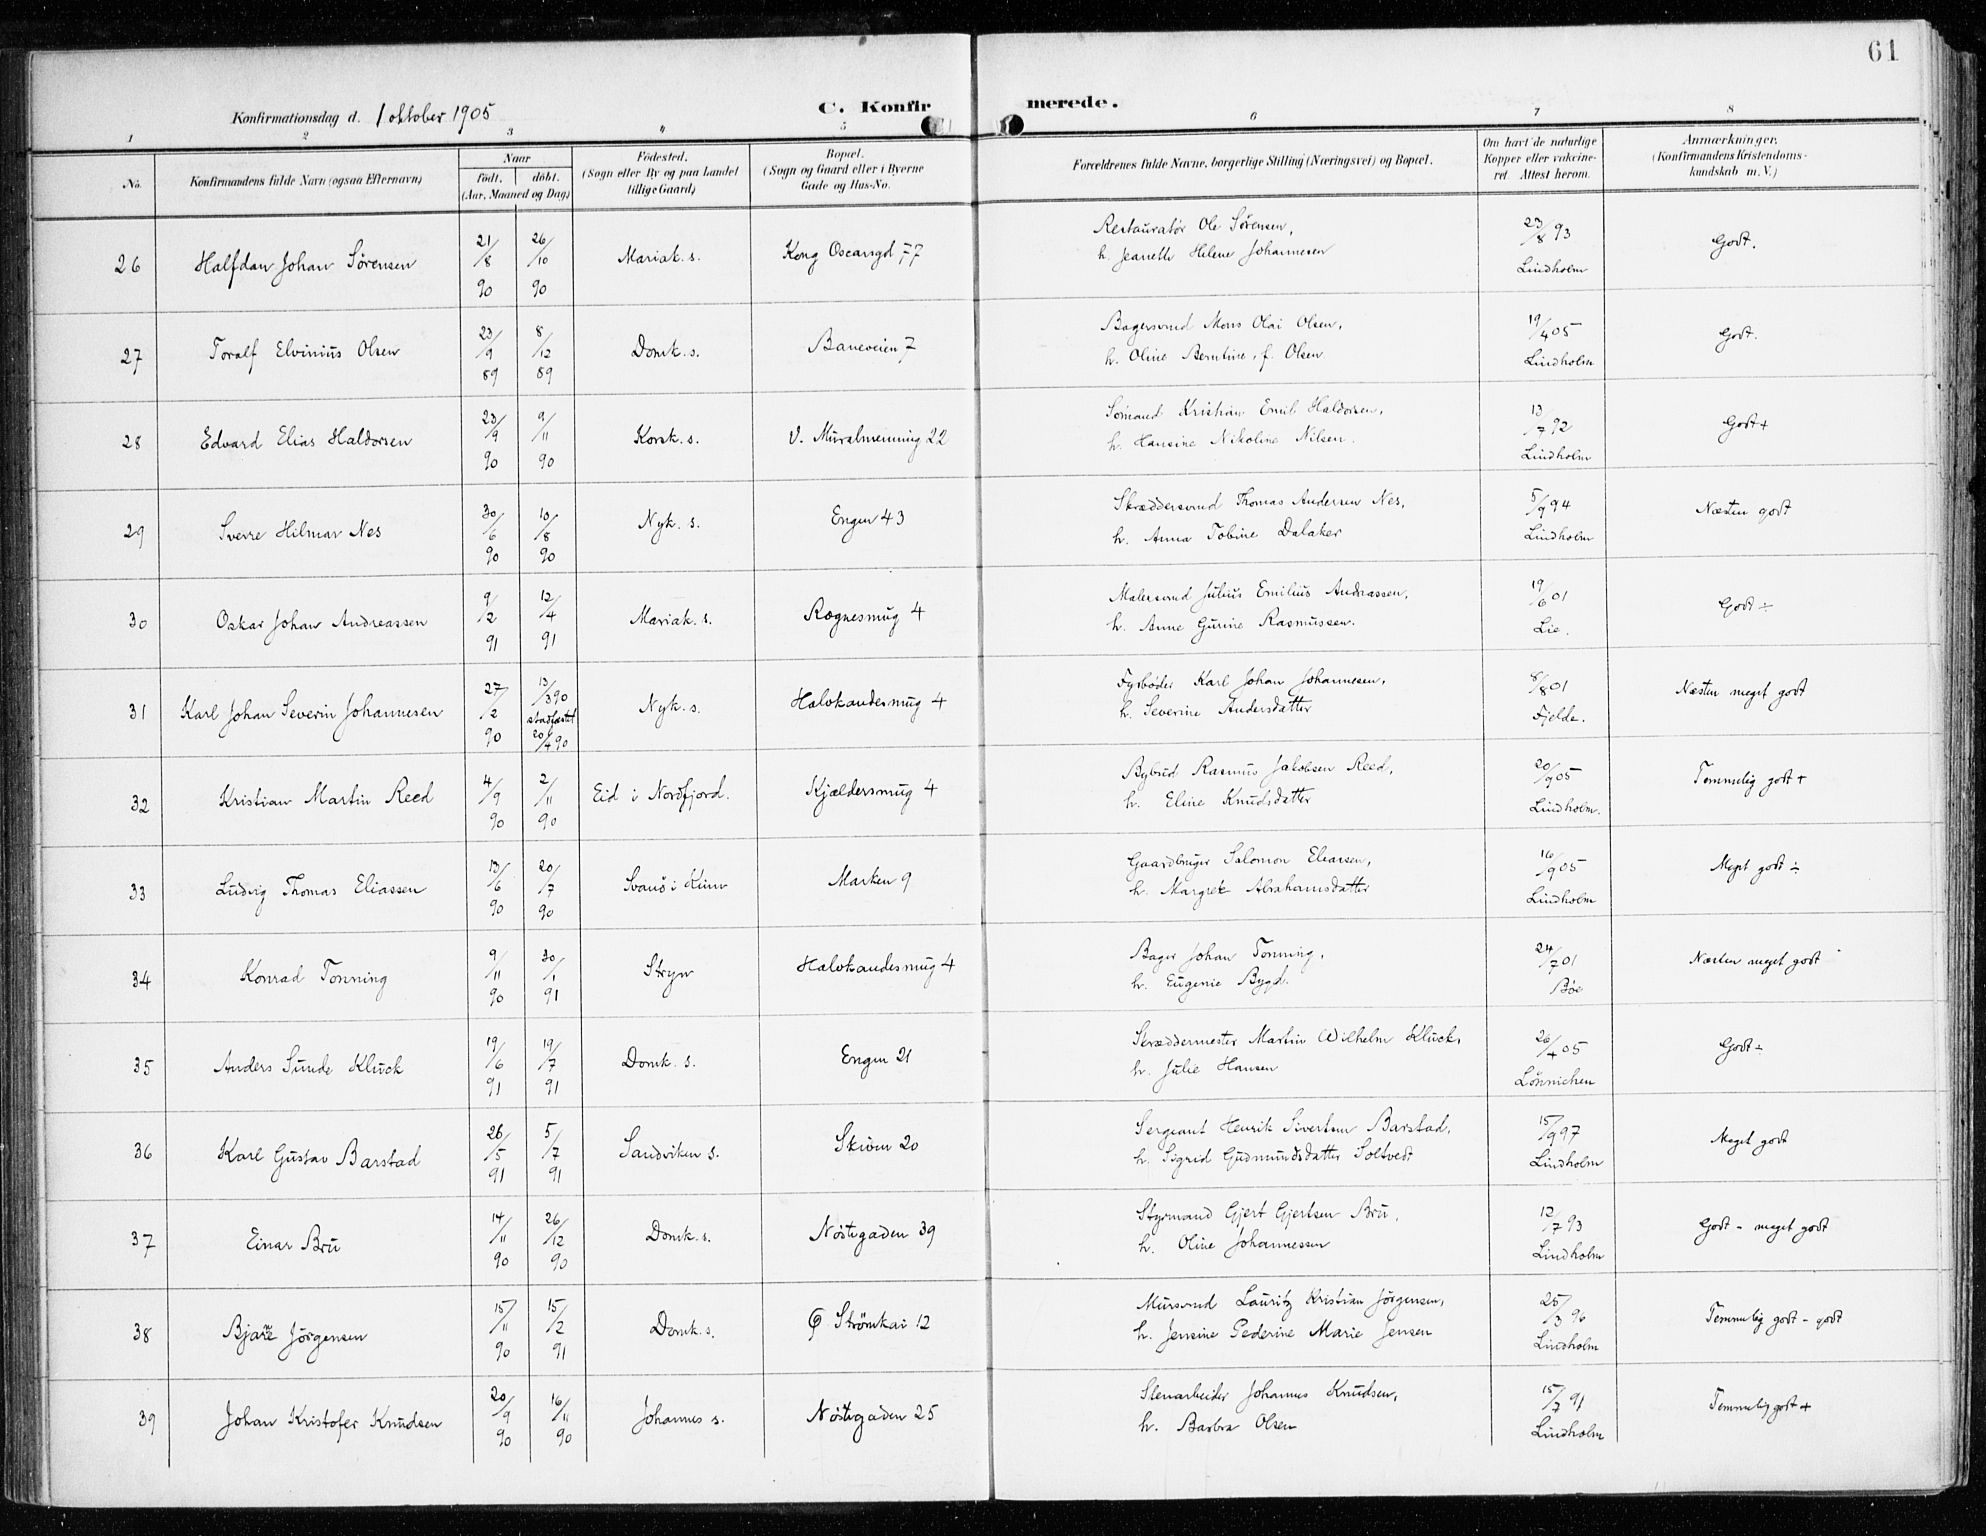 61
Konfirmationsdag d. 1 oktober 1905
C. Konfirmerede.
1 2 3 4 5 6 7 8
No.
Konfirmandens fulde Navn (ogsaa Efternavn)
Naar
födt. döbt.
(Aar, Maaned og Dag)
Födested.
(Sogn eller By og paa Landet
tillige Gaard)
Bopæl.
(Sogn og Gaard eller i Byerne
Gade og Hus-No.
Forældrenes fulde Navne, borgerlige Stilling (Næringsvei) og Bopæl.
Om havt de naturlige
Kopper eller vakcine-
ret. Attest herom.
Anmærkninger.
(Konfirmandens Kristendoms-
kundskab m. V.)
26 Halfdan Johan Sörensen 21/8 90 26/10 90 Mariak. s. Kong Oscarsgd 77
Restauratør Ole Sörensen,
h. Jeanette Helene Johannesen
23/8 93
Lindholm
Godt.
27 Toralf Elvinius Olsen 23/9 89 8/12 89 Domk. s. Baneveien 7
Bagersvend Mons Olai Olsen,
h. Oline Berntine, f. Olsen
19/4 05
Lindholm
Godt.
28 Edvard Elias Haldorsen 23/9 90 9/11 90 Korsk. s. V. Muralmenning 22
Sömand Kristian Emil Haldorsen,
h. Hansine Nikoline Nilsen.
13/7 92
Lindholm
Godt +
29 Sverre Hilmar Nes 30/6 90 13/8 90 Nyk. s. Engen 43
Skræddersvend Thomas Andersen Nes,
h. Anna Tobine Dalaker
5/9 94
Lindholm
Næsten godt
30 Oskar Johan Andreassen 9/2 91 12/4 91 Mariak. s. Rognesmug 4
Malersvend Julius Emilius Andreassen,
h. Anne Gurine Rasmussen.
19/6 01
Lie.
Godt ÷
31 Karl Johan Severin Johannesen 27/2 90 13/3 90 stadfæstet 20/4 90 Nyk. s. Halvkandesmug 4
Fyrböder Karl Johan Johannesen,
h. Severine Andersdatter
8/8 01
Fjelde.
Næsten meget godt
32 Kristian Martin Reed 4/9 90 2/11 90 Eid i Nordfjord. Kjældersmug 4
Bybud Rasmus Jakobsen Reed,
h. Eline Knudsdatter
20/9 05
Lindholm.
Temmelig godt +
33 Ludvig Thomas Eliassen 13/6 90 20/7 90 Svanö i Kinn Marken 9
Gaardbruger Salomon Eliassen,
h. Margrete Abrahamsdatter
16/9 05
Lindholm
Meget godt ÷
34 Konrad Tonning 9/11 90 30/1 91 Stryn Halvkandesmug 4
Bager Johan Tonning,
h. Eugenie Bygd.
24/7 01
Böe
Næsten meget godt
35 Anders Sunde Kluck 19/6 91 19/7 91 Domk. s. Engen 21
Skræddermester Martin Wilhelm Kluck,
h. Julie Hansen
26/4 05
Lönnichen
Godt ÷
36 Karl Gustav Barstad 26/5 91 5/7 91 Sandviken s. Skiven 20
Sergeant Henrik Sivertsen Barstad,
h. Sigrid Gudmundsdatter Soltvedt
15/9 97
Lindholm
Meget godt
37 Einar Bru 14/11 90 26/12 90 Domk. s. Nöstegaden 39
Styrmand Gjert Gjertsen Bru,
h. Oline Johannessen
12/7 93
Lindholm
Godt - meget godt
38 Bjarne Jörgensen 15/11 90 15/2 91 Domk. s. Ø Strömkai 12
Mursvend Lauritz Kristian Jörgensen,
h. Jensine Pederine Marie Jensen
25/3 96
Lindholm
Temmelig godt - godt
39 Johan Kristofer Knudsen 20/9 90 16/11 90 Johannes s. Nöstegaden 25
Stenarbeider Johannes Knudsen,
h. Barbra Olsen
15/7 91
Lindholm
Temmelig godt +